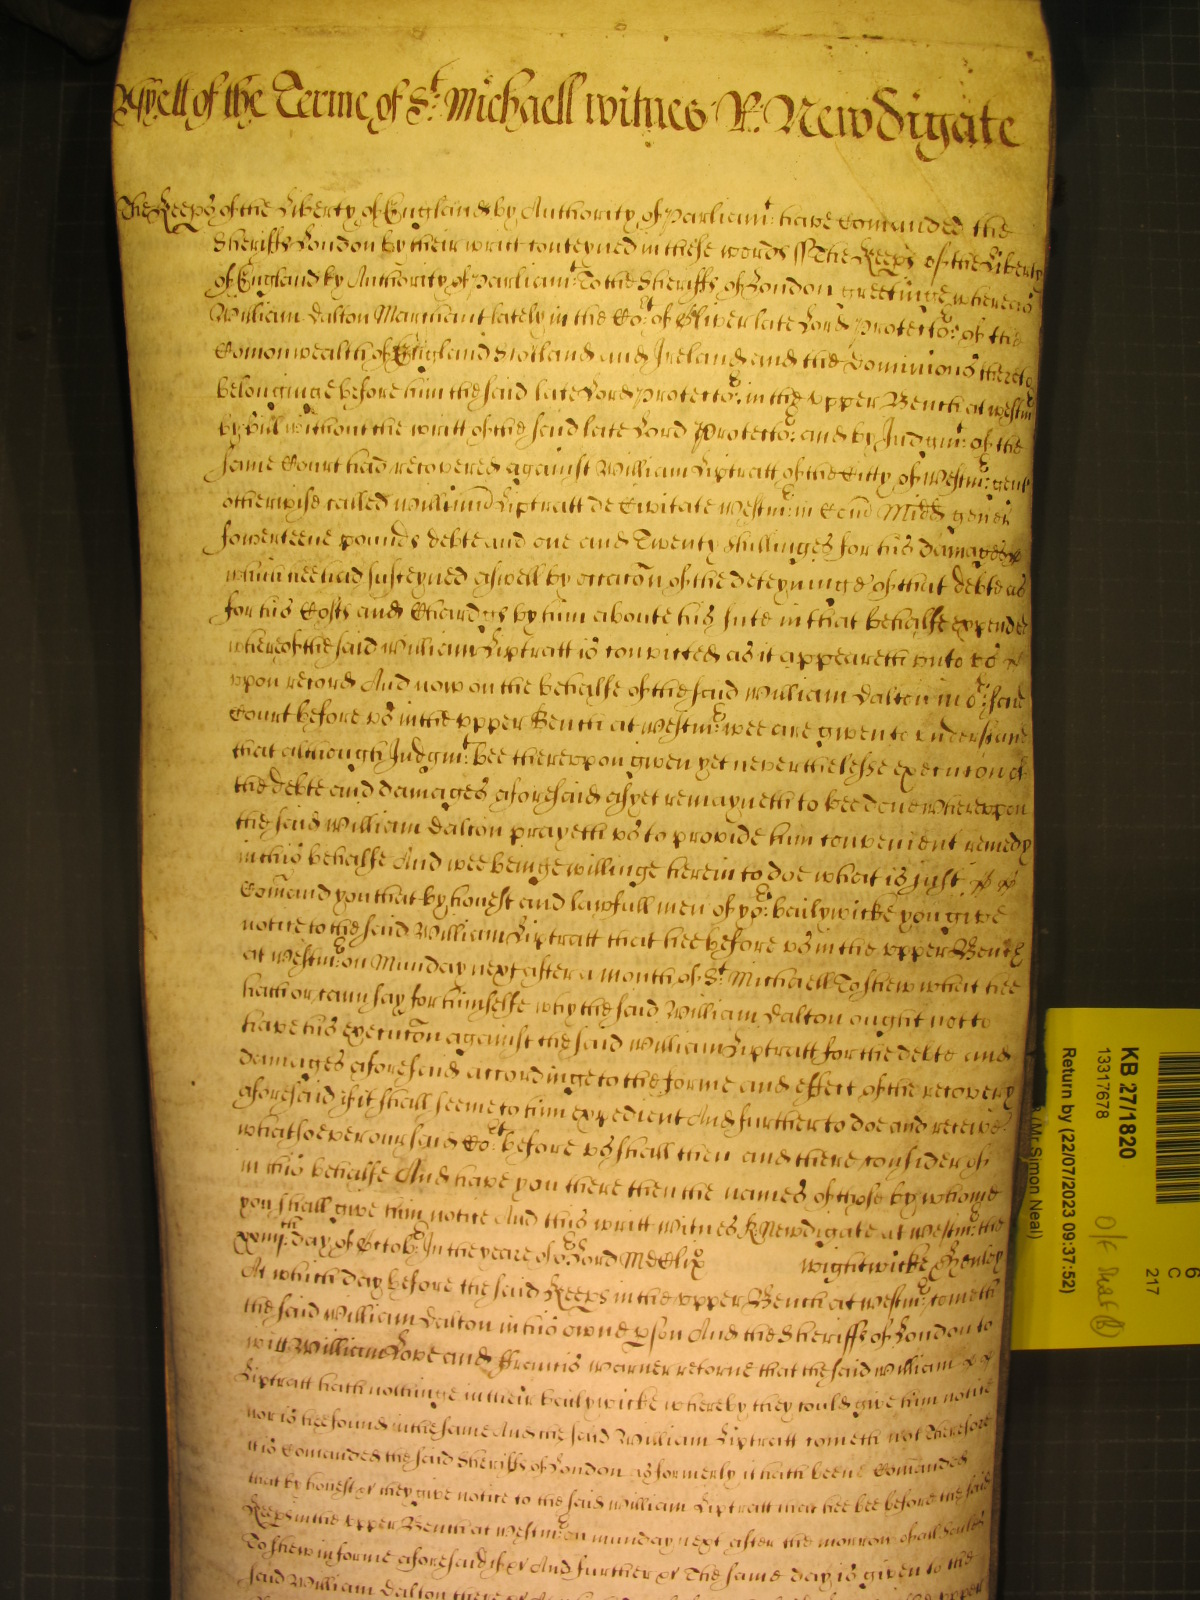 Yett of the Terme of St. Michaell witnes R: Newdigate
The Keeps of the Liberty of England by Authority of Parliamt: have Comanded the
Sheriffs London by their writt conteyned in these words ss The Keeps of the Liberty
of England by Authority of Parliamt: To the Sheriffs of London greetinge whereas
William Dalton Marchant lately in the Cort: of Oliver late Lord Protector: of the
Comonwealth of England Scotland and Ireland and the Dominions thereto
belonginge before him the said late Lord Protector: in the upper Bench at westmr:
by bill without the writt of the said late Lord Protector: and by Judgmt: of the
same Court had recovered against William Liptratt of the Citty of Westmr: gent
otherwise called Willimd Liptratt de Civitate Westmr: in Com Midd gener
fowerteene pounds debte and one and Twenty shillinges for his damages
which hee had susteyned aswell by occacon of the deteyninge of that debte as
for his Costs and Chardgs by him aboute his suite in that behalfe expended
whereof the said William Liptratt is convicted as it appeareth unto us
upon record And now on the behalfe of the said William Dalton in or: said
Court before us in the upper Bench at Westmr: wee are given to understand
that although Judgmt: bee thereupon given yet neverthelesse execution of
the debte and damages aforesaid as yet remayneth to bee done whereupon
the said William Dalton prayeth us to provide him convenient remedy
in this behalfe And wee beinge willinge herein to doe what is just
Comand you that by honest and lawfull men of yor: bailywicke you give
notice to the said William Liptratt that hee bee before us in the upper Bench
at westmr: on Munday next after a month of St Michaell To shew what hee
hath or cann say for himselfe why the said William Dalton ought not to
have his execution against the said William Liptratt for the debte and
damages aforesaid accordinge to the forme and effect of the recovery
aforesaid if it shall seeme to him expedient And further to doe and receive
whatsoever our said Cort: before us shall then and there consider of
in this behalfe And have you there then the names of those by whome
you shall give him notice And this writt witnes R Newdigate at westmr: the
xxiiijth: day of Octobr: In the yeare of or: Lord MDClix wightwicke Henley
At which day before the said Keeps in the upper Bench at westmr: cometh
the said William Dalton in his owne pson And the Sheriffs of London to
witt William Love and Francis Warner retorne that the said William
Liptratt hath nothinge in their bailywicke whereby they could give him notice
nor is hee found in the same And the said William Liptratt cometh not Therefore
it is Comanded the said Sheriffs of London as formerly it hath beene Comanded
that by honest &c they give notice to the said William Liptratt that hee bee before the said
Keeps in the upper Bench at westmr: on munday next after the morrow of all Soules
To shew in forme aforesaid if &c And further &c The same day is given to the
said William Dalton there &c
KB 27/1820
13317678
Return by (22/07/2023 09:37:52)
Mr Simon Neal)
6
C
217